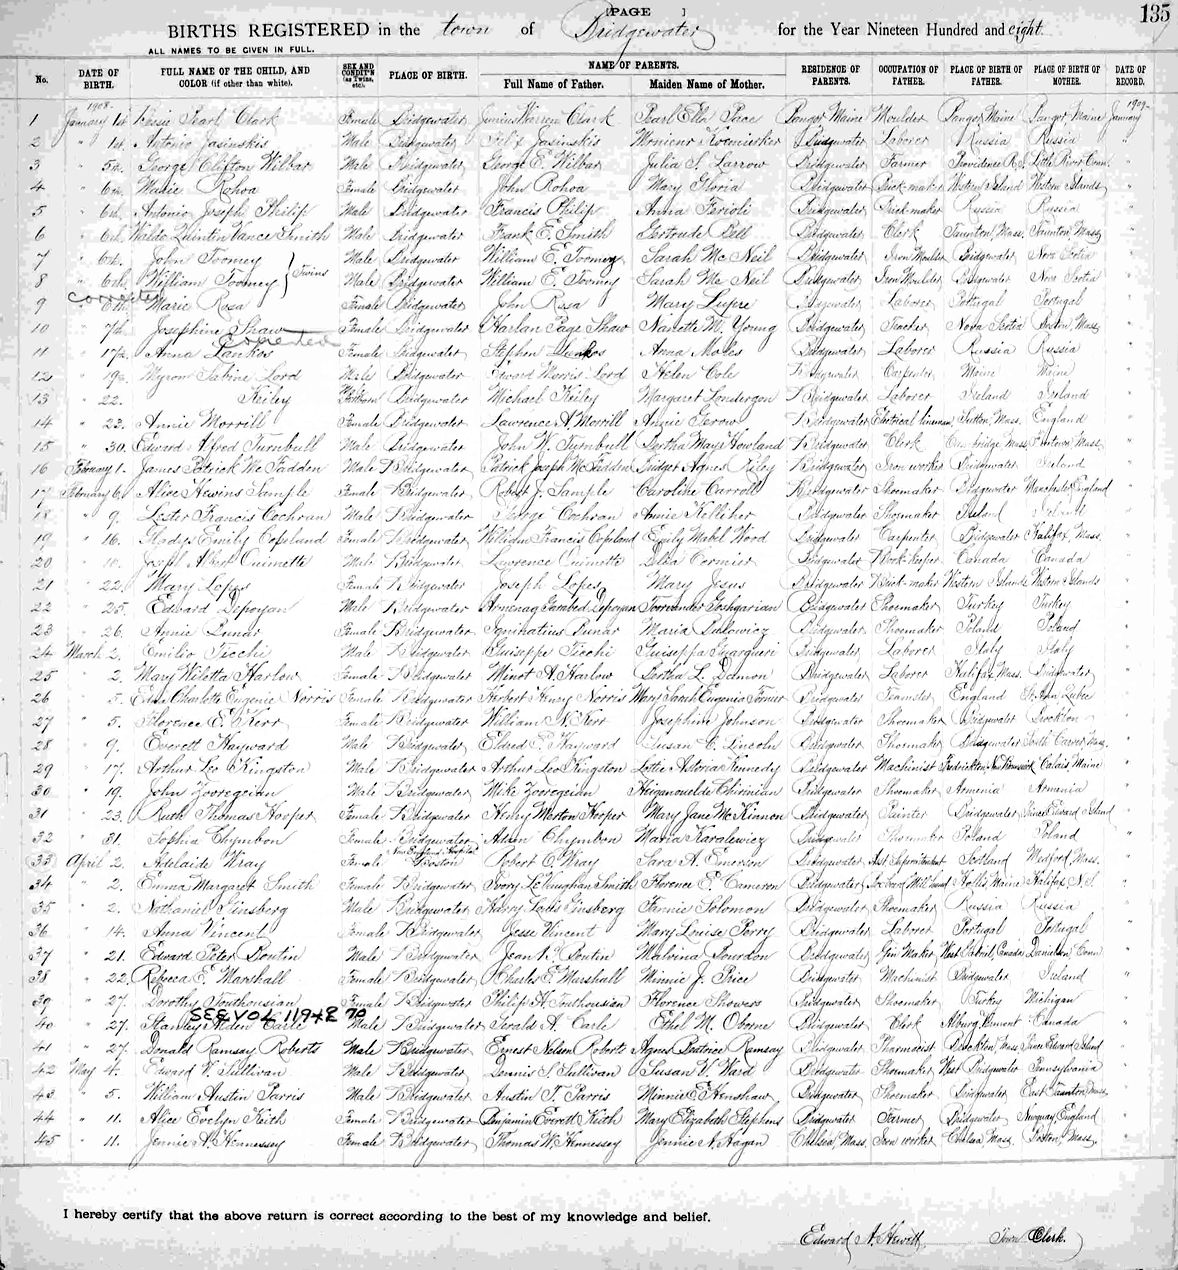 [PAGE ] 135
BIRTHS REGISTERED in the town of Bridgewater for the Year Nineteen Hundred and eight
ALL NAMES TO BE GIVEN IN FULL.
No. DATE OF BIRTH. FULL NAME OF THE CHILD, AND COLOR (if other than white). SEX AND CONDIT'N (as Twins, etc). PLACE OF BIRTH. NAME OF PARENTS. Full Name of Father. Maiden Name of Mother. RESIDENCE OF PARENTS. OCCUPATION OF FATHER. PLACE OF BIRTH OF FATHER. PLACE OF BIRTH OF MOTHER. DATE OF RECORD.
1908- 1909-
1 January 1st Bessie Pearl Clark Female Bridgewater Junius Warren Clark Pearl Ella Pace Bangor Maine Moulder Bangor Maine Bangor Maine January
2 " 1st Antonio Jasinskis Male Bridgewater Felix Jasinskis Bridgewater Laborer Russia Russia "
3 " 5th George Clifton Wilbar Male Bridgewater George E. Wilbar Julia S. Larrow Bridgewater Farmer Providence R.I. Little River Conn. "
4 " 6th Marie Rohoa Female Bridgewater John Rohoa Mary Gloria Bridgewater Brick-maker Western Island Western Islands "
5 " 6th Antonio Joseph Philip Male Bridgewater Francis Philip Anna Ferioli Bridgewater Brick-maker Russia Russia "
6 " 6th Waldo Quintin Vance Smith Male Bridgewater Frank E. Smith Gertrude Bell Bridgewater Clerk Taunton, Mass. Taunton, Mass. "
7 " 6th John Toomey Male Bridgewater William E. Toomey Sarah Mc Neil Bridgewater Iron Moulder Bridgewater Nova Scotia "
Twins
8 " 6th William Toomey Male Bridgewater William E. Toomey Sarah Mc Neil Bridgewater Iron Moulder Bridgewater Nova Scotia "
corrected
9 " 6th Marie Rosa Female Bridgewater John Rosa Mary Bridgewater Laborer Portugal Portugal "
10 " 7th Josephine Shaw Female Bridgewater Harlan Page Shaw Nanette M. Young Bridgewater Teacher Nova Scotia Boston, Mass. "
Corrected
11 " 17th Anna Lankos Female Bridgewater Stephen Lankos Anna Bridgewater Laborer Russia Russia "
12 " 19th Myron Sabine Lord Male Bridgewater Edward Morris Lord Helen Cole Bridgewater Carpenter Maine Maine "
13 " 22. Keiley Bridgewater Michael Keiley Margaret Londergon Bridgewater Laborer Ireland Ireland "
14 " 22. Annie Morrill Female Bridgewater Lawrence A. Morrill Annie Gerow Bridgewater Electrical lineman Sutton, Mass. England "
15 " 30. Edward Alfred Turnbull Male Bridgewater John W. Turnbull Bertha Mays Howland Bridgewater Clerk Mass. Mass. "
16 February 1. James Patrick Mc Fadden Male Bridgewater Patrick Joseph McFadden Bridget Agnes Riley Bridgewater Iron worker Bridgewater Ireland "
17 February 6. Alice Hewins Sample Female Bridgewater Robert J. Sample Caroline Carroll Bridgewater Shoemaker Bridgewater Manchester England "
18 " 9. Lester Francis Cochran Male Bridgewater George Cochran Annie Kelliher Bridgewater Shoemaker Ireland Ireland "
19 " 16. Gladys Emily Copeland Female Bridgewater William Francis Copeland Emily Mabel Wood Bridgewater Carpenter Bridgewater Halifax, Mass. "
20 " Joseph Albert Ouimette Male Bridgewater Lawrence Ouimette Delia Cormier Bridgewater Book-keeper Canada Canada "
21 " 22. Mary Lopes Female Bridgewater Joseph Lopes Mary Jesus Bridgewater Brick-maker Western Islands Western Islands "
22 " 25. Edward Depoyan Male Bridgewater Armenag Garabed Depoyan Goshgarian Bridgewater Shoemaker Turkey Turkey "
23 " 26. Annie Bunar Female Bridgewater Ignihatius Bunar Maria Bridgewater Shoemaker Poland Poland "
24 March 2. Emilio Ticchi Male Bridgewater Guiseppe Ticchi Guiseppa Guarqueri Bridgewater Laborer Italy Italy "
25 " 2. Mary Wiletta Harlow Female Bridgewater Minot A. Harlow Bertha L. Damon Bridgewater Laborer Halifax, Mass. Bridgewater "
26 " 5. Edna Charlotte Eugenie Norris Female Bridgewater Herbert Henry Norris Mary Sarah Eugenia Bridgewater Teamster England St. Ann Quebec "
27 " 5. Florence E. Kerr Female Bridgewater William N. Kerr Josephine Johnson Bridgewater Shoemaker Bridgewater Brockton "
28 " 9. Everett Hayward Male Bridgewater Eldred E. Hayward Susan C. Lincoln Bridgewater Shoemaker Bridgewater South Carver, Mass. "
29 " 17. Arthur Leo Kingston Male Bridgewater Arthur Leo Kingston Lottie Astoria Kennedy Bridgewater Machinist Fredrickton, New Brunswick Calais, Maine "
30 " 19. John Zooregeian Male Bridgewater Mike Zooregeian Chirinian Bridgewater Shoemaker Armenia Armenia "
31 " 23. Ruth Thomas Hooper Female Bridgewater Henry Merton Hooper Mary Jane McKinnon Bridgewater Painter Bridgewater Prince Edward Island "
32 " 31. Sophia Chymbon Female Bridgewater Adam Chymbon Maria Karalewicz Bridgewater Shoemaker Poland Poland "
New England Hospital
33 April 2. Adelaide Wray Female Boston Robert C. Wray Sara A. Emerson Bridgewater Asst. Superintendent Scotland Medford, Mass. "
34 " 2. Emma Margaret Smith Female Bridgewater Ivory LeVaughan Smith Florence E. Cameron Bridgewater Hollis, Maine Halifax N.S. "
35 " 2. Nathaniel Ginsberg Male Bridgewater Harry Louis Ginsberg Fannie Solomon Bridgewater Shoemaker Russia Russia "
36 " 14. Anna Vincent Female Bridgewater Jesse Vincent Mary Louise Perry Bridgewater Laborer Portugal Portugal "
37 " 21. Edward Peter Boutin Male Bridgewater Jean V. Boutin Malvina Bourdon Bridgewater Gin Maker Canada Danielson Conn "
38 " 22. Rebecca E. Marshall Female Bridgewater Charles E. Marshall Minnie J. Price Bridgewater Machinist Bridgewater Ireland "
39 " 27. Dorothy Southousian Female Bridgewater Philip A. Southousian Florence Showers Bridgewater Shoemaker Turkey Michigan "
SEE VOL 119+2 70
40 " 27. Stanley Alden Carle Male Bridgewater Gerald A. Carle Ethel M. Oborne Bridgewater Clerk Alburg, Vermont Canada "
41 " 27. Donald Ramsay Roberts Male Bridgewater Ernest Nelson Roberts Agnes Beatrice Ramsay Bridgewater Pharmacist Brockton, Mass. Prince Edward Island "
42 May 4. Edward V. Sullivan Male Bridgewater Dennis S. Sullivan Susan V. Ward Bridgewater Shoemaker West Bridgewater Pennsylvania "
43 " 5. William Austin Parris Male Bridgewater Austin T. Parris Minnie E. Henshaw Bridgewater Shoemaker Bridgewater East Taunton, Mass. "
44 " 11. Alice Evelyn Keith Female Bridgewater Benjamin Everett Keith Mary Elizabeth Stephens Bridgewater Farmer Bridgewater Newquay, England "
45 " 11. Jennie A. Hennessey Female Bridgewater Thomas W. Hennessey Jennie A. Hagan Chelsea, Mass. Iron worker Chelsea, Mass. Boston, Mass. "
I hereby certify that the above return is correct according to the best of my knowledge and belief.
Edward A. Hewett Town Clerk.